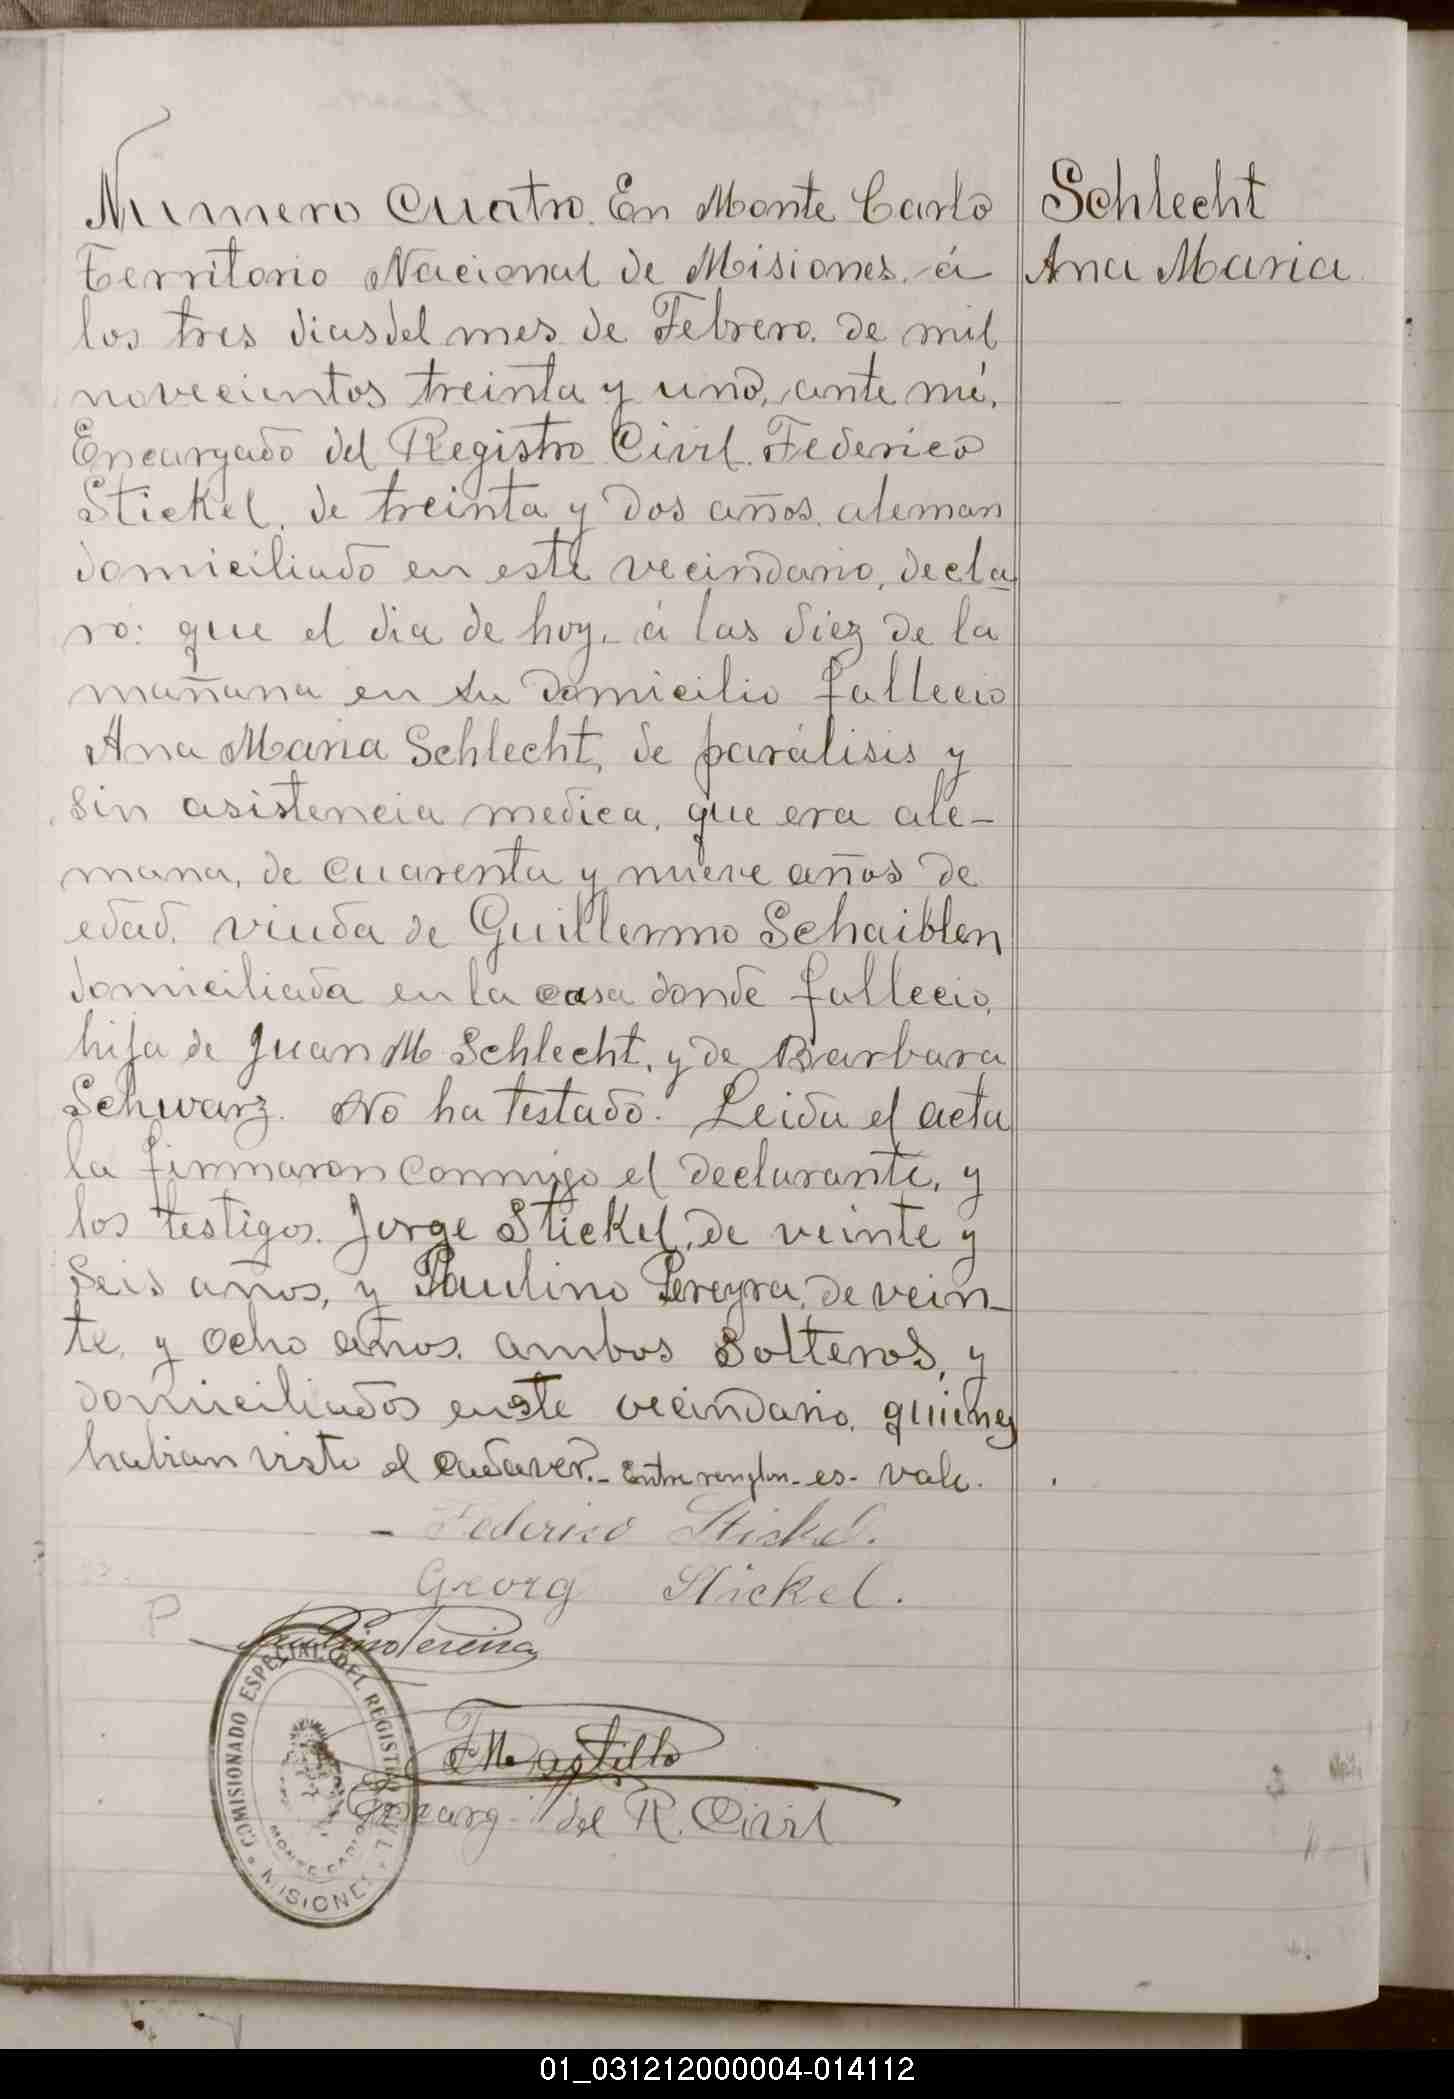 Numero Cuatro. En Monte Carlo
Territorio Nacional de Misiones, á
los tres dias del mes de Febrero, de mil
novecientos treinta y uno, ante mí,
Encargado del Registro Civil. Federico
Stickel, de treinta y dos años, aleman
domiciliado en este vecindario, decla
ró: que el dia de hoy, á las diez de la
mañana en su domicilio fallecio
Ana Maria Schlecht, de parálisis y
sin asistencia medica, que era ale-
mana, de cuarenta y nueve años de
edad, viuda de Guillermo Schaiblen
domiciliada en la casa donde fallecio,
hija de Juan M Schlecht, y de Barbara
Schwarz. No ha testado. Leida el acta
la firmaron conmigo el declarante, y
los testigos. Jorge Stickel, de veinte y
seis años, y Paulino Pereyra, de vein-
te y ocho años, ambos solteros, y
domiciliados en este vecindario, quienes
habian visto el cadaver.- Entre renglon - es - vale.
Schlecht
Ana Maria
- Federico Stickel.
Georg Stickel.
P
Paulino Pereira
F M Castillo
Encarg. del R. Civil
COMISIONADO ESPECIAL DEL REGISTRO CIVIL
MONTE CARLO
MISIONES
01_031212000004-014112